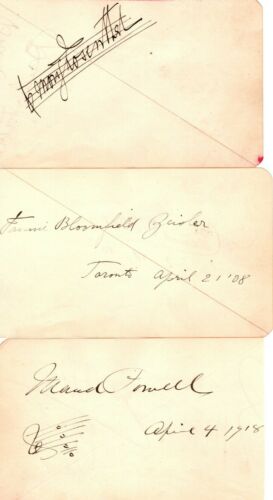 Fannie Bloomfield Zeisler
Toronto April 21 '08
Maud Powell
April 4 1918